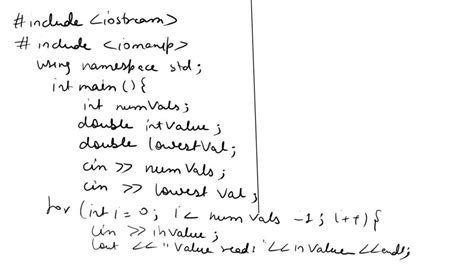 #include <iostream>
# include <iomanip>
using namespace std;
int main () {
int numVals;
double intValue;
double lowestVal;
cin >> numVals;
cin >> lowest Val;
for (int i = 0; i < num Vals -1; i++) {
cin >> inValue;
cout << "Value read: " << inValue << endl;